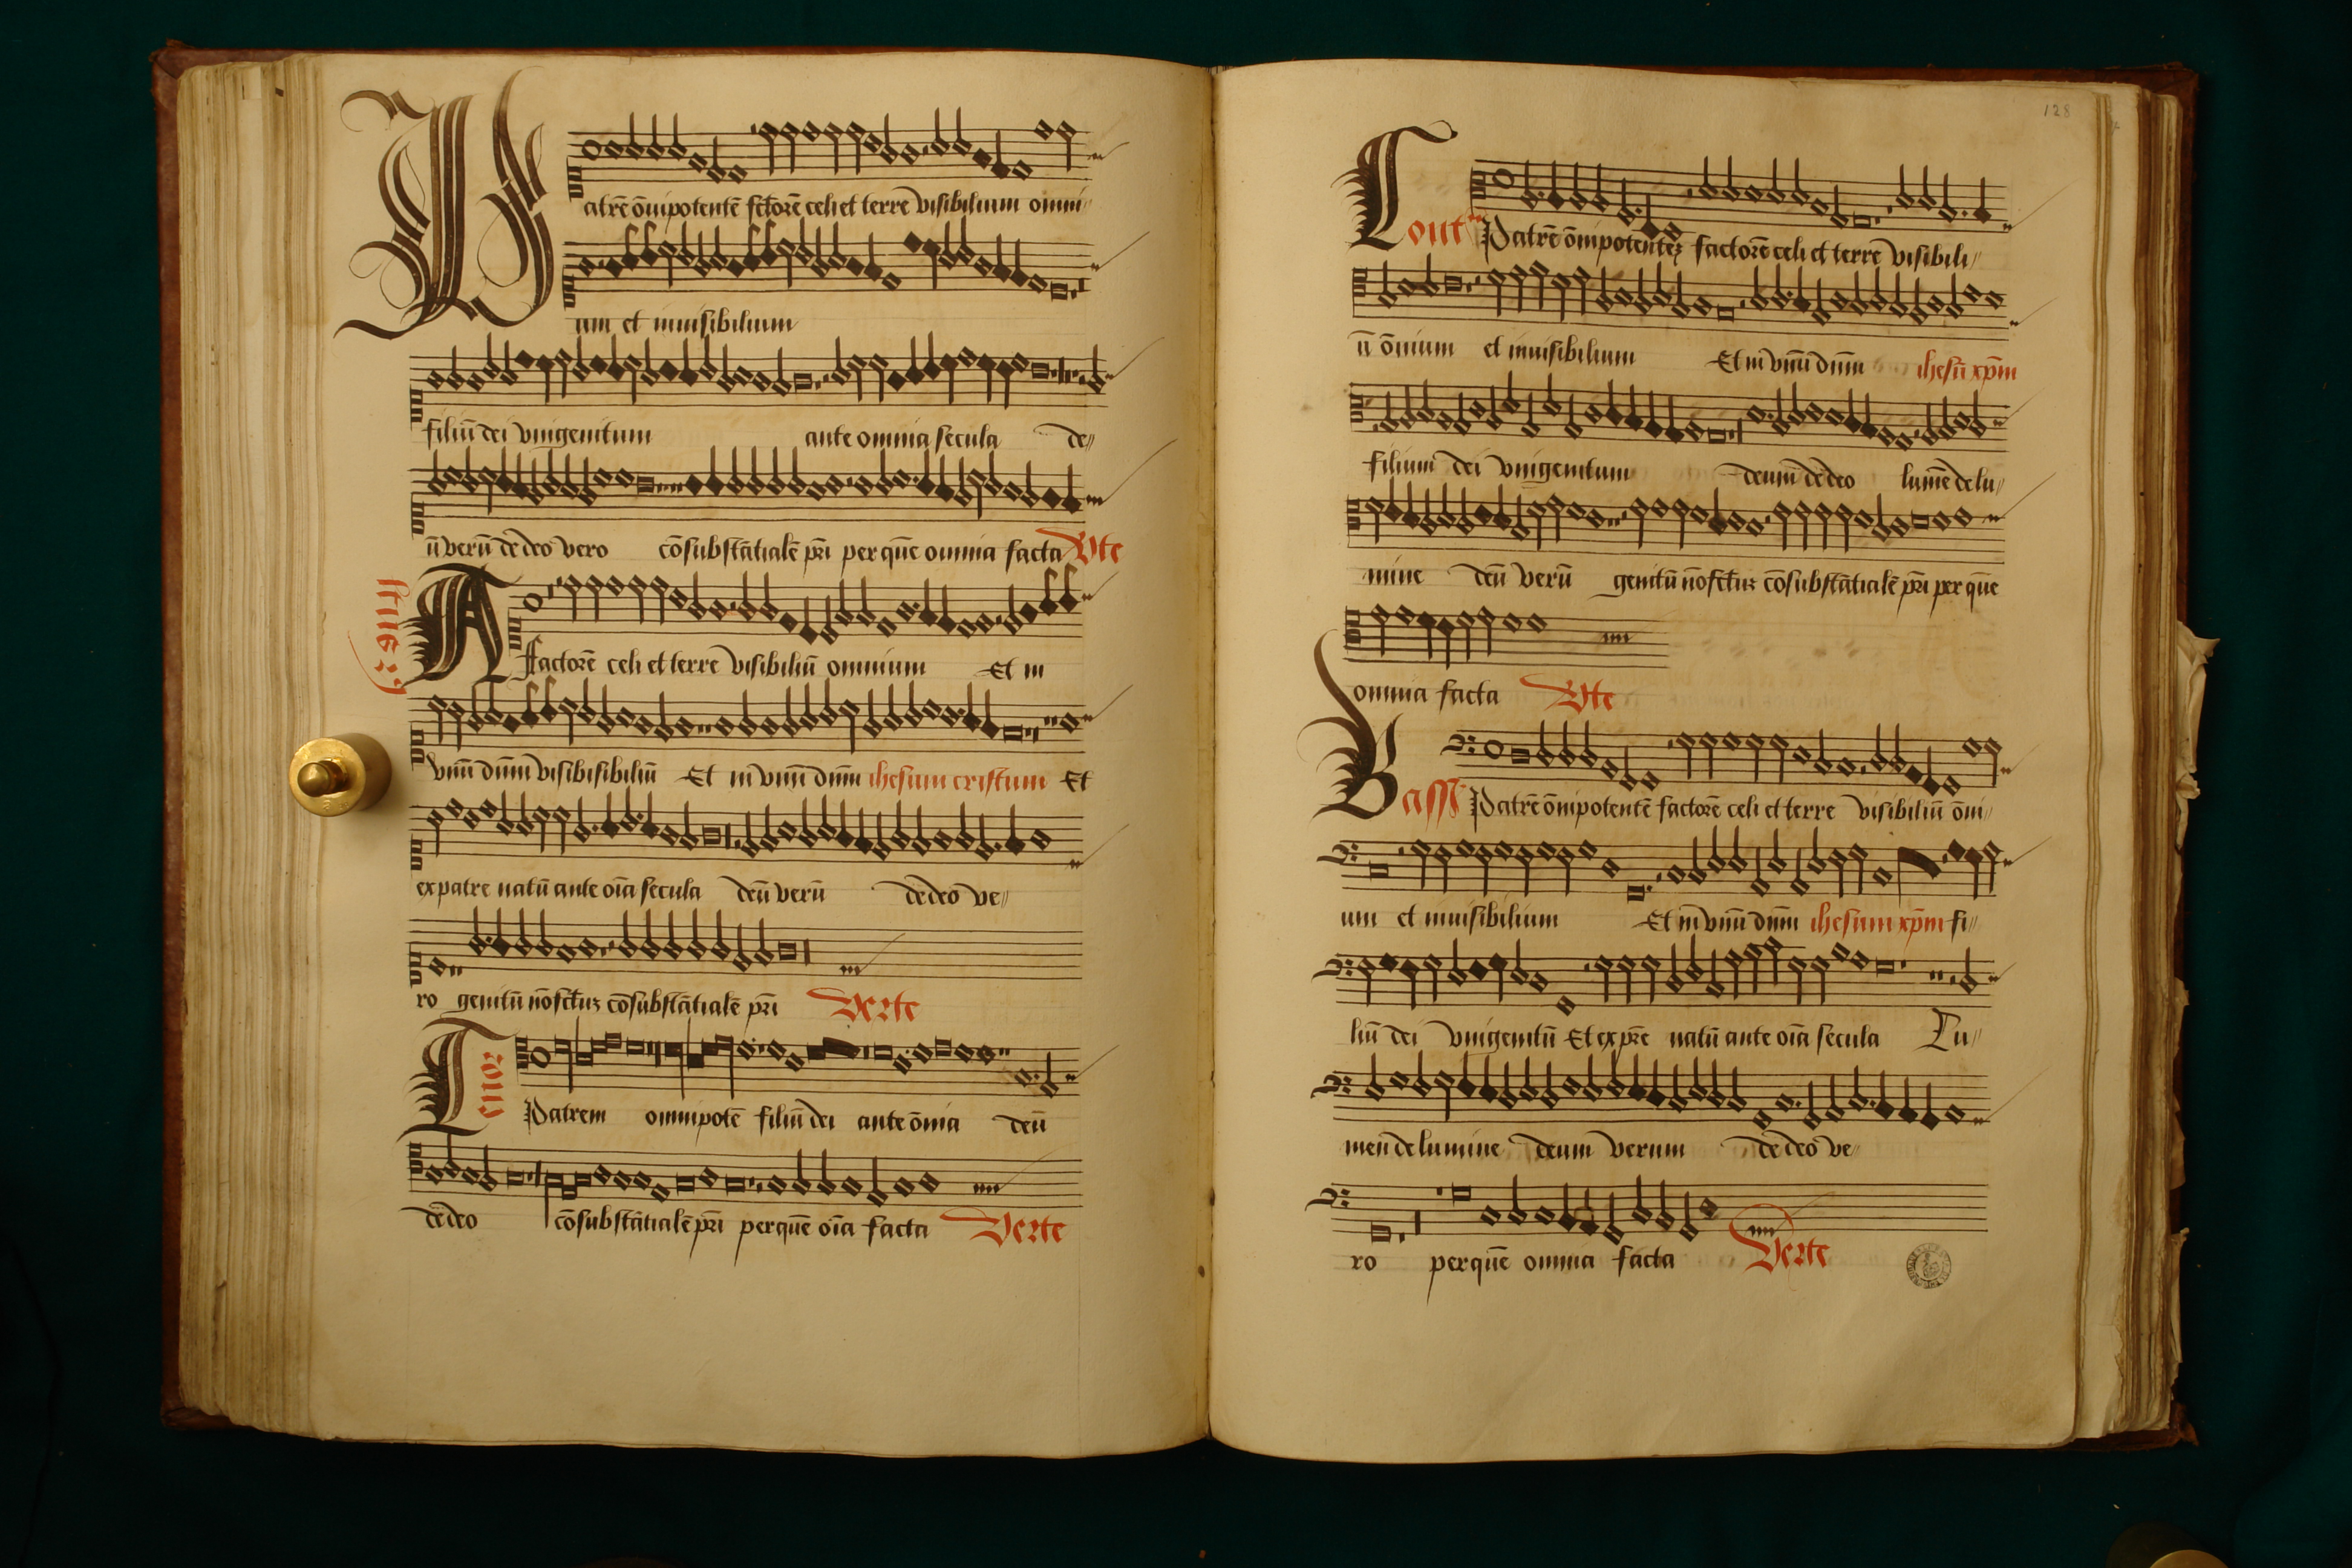 Patrē ōmipotentē fctorē celi et terre visibilium omni
um et inuisibilium
filiū dei vnigenitum ante omnia secula de
ū verū de deo vero cōsubstātialē pr̄i per quē omnia facta Vte
Altus
Factorē celi et terre visibiliū omnium Et in
vnū dn̄m visibisibiliū Et in vnū dn̄m ihesum cristum Et
ex patre natū ante oīa secula deū verū de deo ve
ro genitū nō fctuꝫ cōsubstātialē pr̄i Verte
Tenor
Patrem omnipotē filiū dei ante ōnia deū
de deo cōsubstātialē pr̄i per quē oīa facta Verte
128
Cont Patrē ōmipotenteꝫ factorē celi et terre visibili
ū ōnium et inuisibilium Et in vnū dn̄m ihesū xp̄m
filium dei vnigenitum deum de deo lumē de lu
mine deū verū genitū nō fctuꝫ cōsubstātialē pr̄i per quē
omnia facta Vte
Bass Patrē ōmipotentē factorē celi et terre visibiliū ōni
um et inuisibilium Et in vnū dn̄m ihesum xp̄m fi
liū dei vnigenitū Et ex pr̄e natū ante oīa secula Lu
men de lumine deum verum de deo ve
ro per quē omnia facta Verte